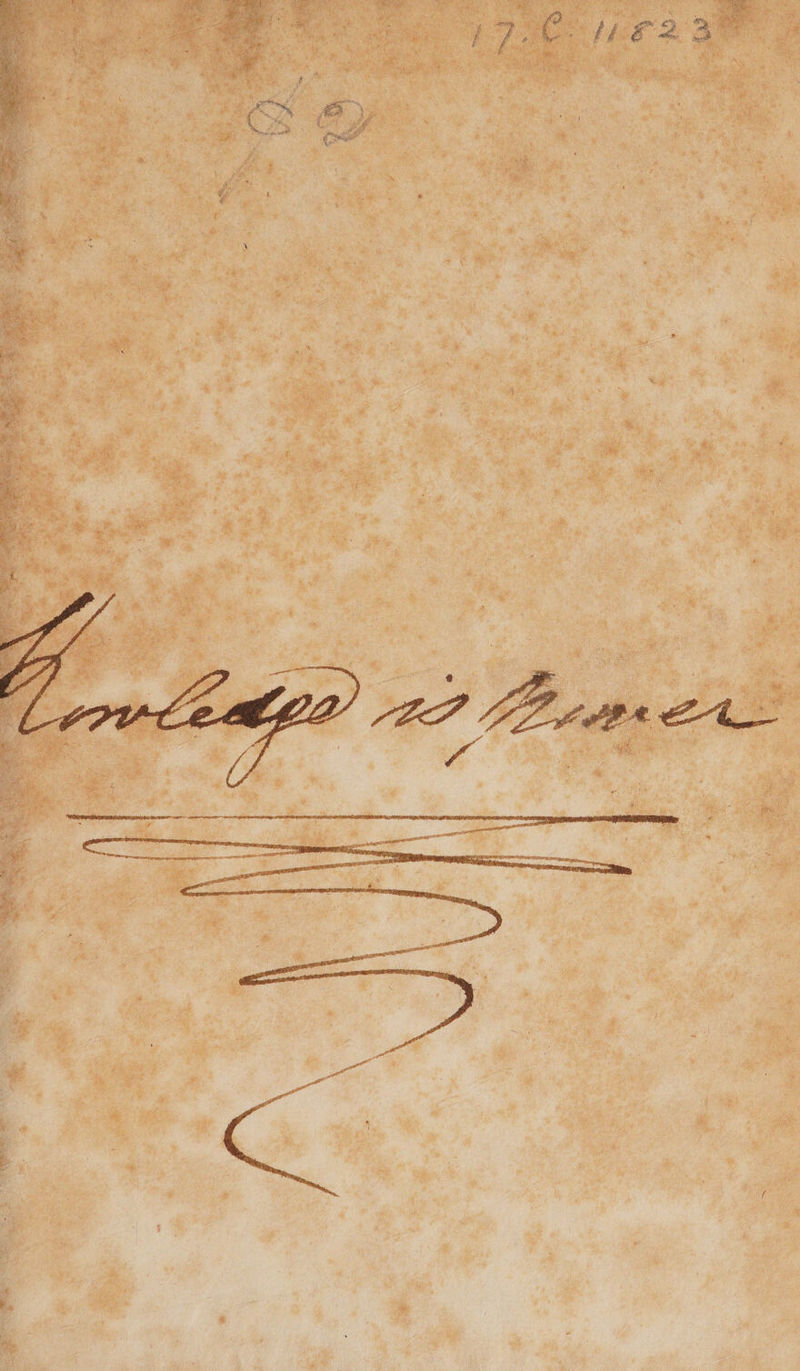 17.C. 11823
$2
Knowledge is power